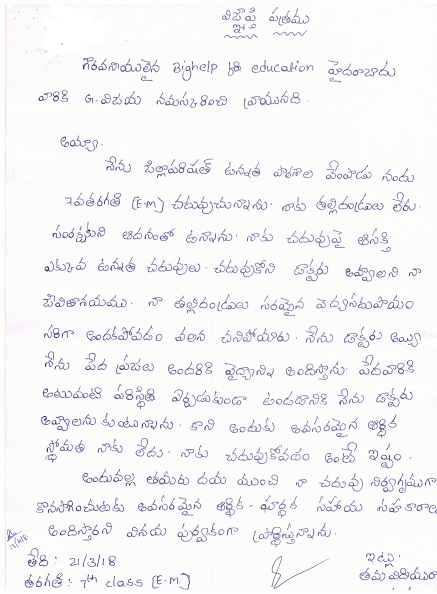 విజ్ఞప్తి పత్రము
గౌరవనీయులైన Bighelp for education హైదరాబాదు
వారికి G. విజయ నమస్కరించి వ్రాయునది.
అయ్యా.
నేను జిల్లాపరిషత్ ఉన్నత పాఠశాల వేంపాడు నందు
7వతరగతి (E.M) చదువుచున్నాను. నాకు తల్లిదండ్రులు లేరు.
సంరక్షకుని ఆదనంతో ఉన్నాను. నాకు చదువుపై ఆసక్తి
ఎక్కువ ఉన్నత చదువులు. చదువుకోని డాక్టరు అవ్వాలని నా
నా తల్లిదండ్రులు సరమైన
సరిగా అందకపోవడం వలన చనిపోయారు. నేను డాక్టరు అయ్యి
నేను పేద ప్రజలు అందరికి వైద్యాన్ని అందిస్తాను. పేదవారికి
అటువంటి పరిస్థితి ఏర్పడుకుండా ఉండడానికి నేను డాక్టరు
అవ్వాలను కుంటున్నాను. కాని అందుకు అవసరమైన ఆర్థిక
స్థోమత నాకు లేదు. నాకు చదువుకోవడం అంటే ఇష్టం.
అందువల్ల తమరు దయ యుంచి నా చదువు నిర్విఘ్నముగా
కొనసాగించుటకు అవసరమైన ఆర్థిక. హార్థిక సహాయ సహకారాలు
అందిస్తారని వినయ పూర్వకంగా ప్రార్థిస్తున్నాను.
తేది: 21/3/18 ఇట్లు
తరగతి: 7th class (E.M) తమ విదియురా